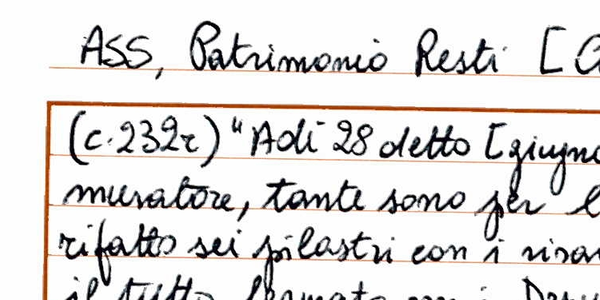 ASS, Patrimonio Resti [C
(c.232r) "Adi 28 detto [giugno
muratore, tante sono per l
rifatto sei pilastri con i risa
il tutto fermato con i